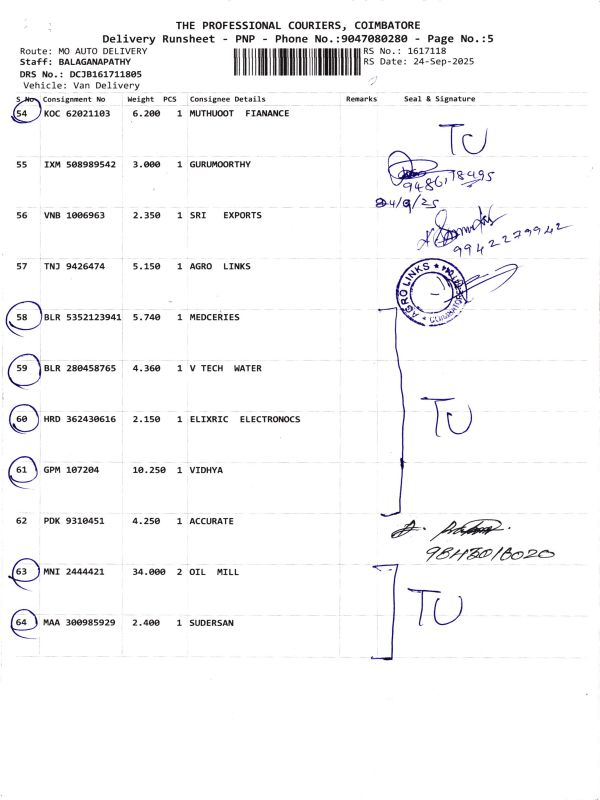 THE PROFESSIONAL COURIERS, COIMBATORE
Delivery Runsheet - PNP - Phone No.:9047080280 - Page No.:5
Route: MO AUTO DELIVERY
RS No.: 1617118
Staff: BALAGANAPATHY
RS Date: 24-Sep-2025
DRS No.: DCJB161711805
Vehicle: Van Delivery
S.No Consignment No Weight PCS Consignee Details Remarks Seal & Signature
54 KOC 62021103 6.200 1 MUTHUOOT FIANANCE
TU
55 IXM 508989542 3.000 1 GURUMOORTHY
9486178495
24/9/25
56 VNB 1006963 2.350 1 SRI EXPORTS
9942279942
57 TNJ 9426474 5.150 1 AGRO LINKS
AGRO LINKS
58 BLR 5352123941 5.740 1 MEDCERIES
59 BLR 280458765 4.360 1 V TECH WATER
60 HRD 362430616 2.150 1 ELIXRIC ELECTRONOCS
TU
61 GPM 107204 10.250 1 VIDHYA
62 PDK 9310451 4.250 1 ACCURATE
63 MNI 2444421 34.000 2 OIL MILL
TU
64 MAA 300985929 2.400 1 SUDERSAN